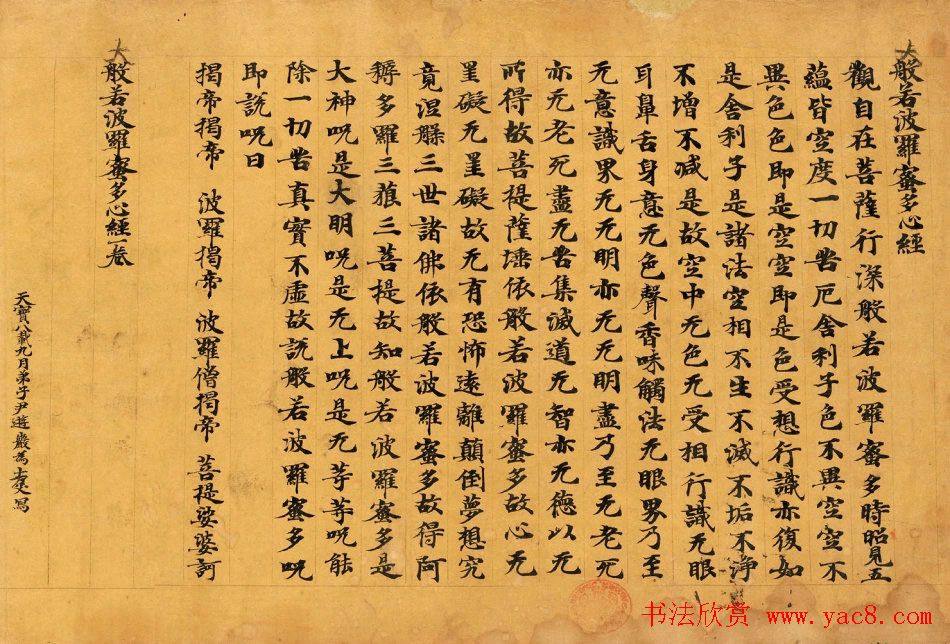 大般若波羅蜜多心經
觀自在菩薩行深般若波羅蜜多時昭見五
蘊皆空度一切苦厄舍利子色不異空空不
異色色即是空空即是色受想行識亦復如
是舍利子是諸法空相不生不滅不垢不淨
不增不減是故空中无色无受相行識无眼
耳鼻舌身意无色聲香味觸法无眼界乃至
无意識界无无明亦无无明盡乃至无老死
亦无老死盡无苦集滅道无智亦无德以无
所得故菩提薩埵依般若波羅蜜多故心无
罣礙无罣礙故无有恐怖遠離顛倒夢想究
竟涅槃三世諸佛依般若波羅蜜多故得阿
耨多羅三藐三菩提故知般若波羅蜜多是
大神呪是大明呪是无上呪是无等等呪能
除一切苦真實不虛故說般若波羅蜜多呪
即說呪曰
揭帝揭帝 波羅揭帝 波羅僧揭帝 菩提娑婆訶
大般若波羅蜜多心經一卷
天寶八載九月弟子尹遊巖為寫
书法欣赏 www.yac8.com